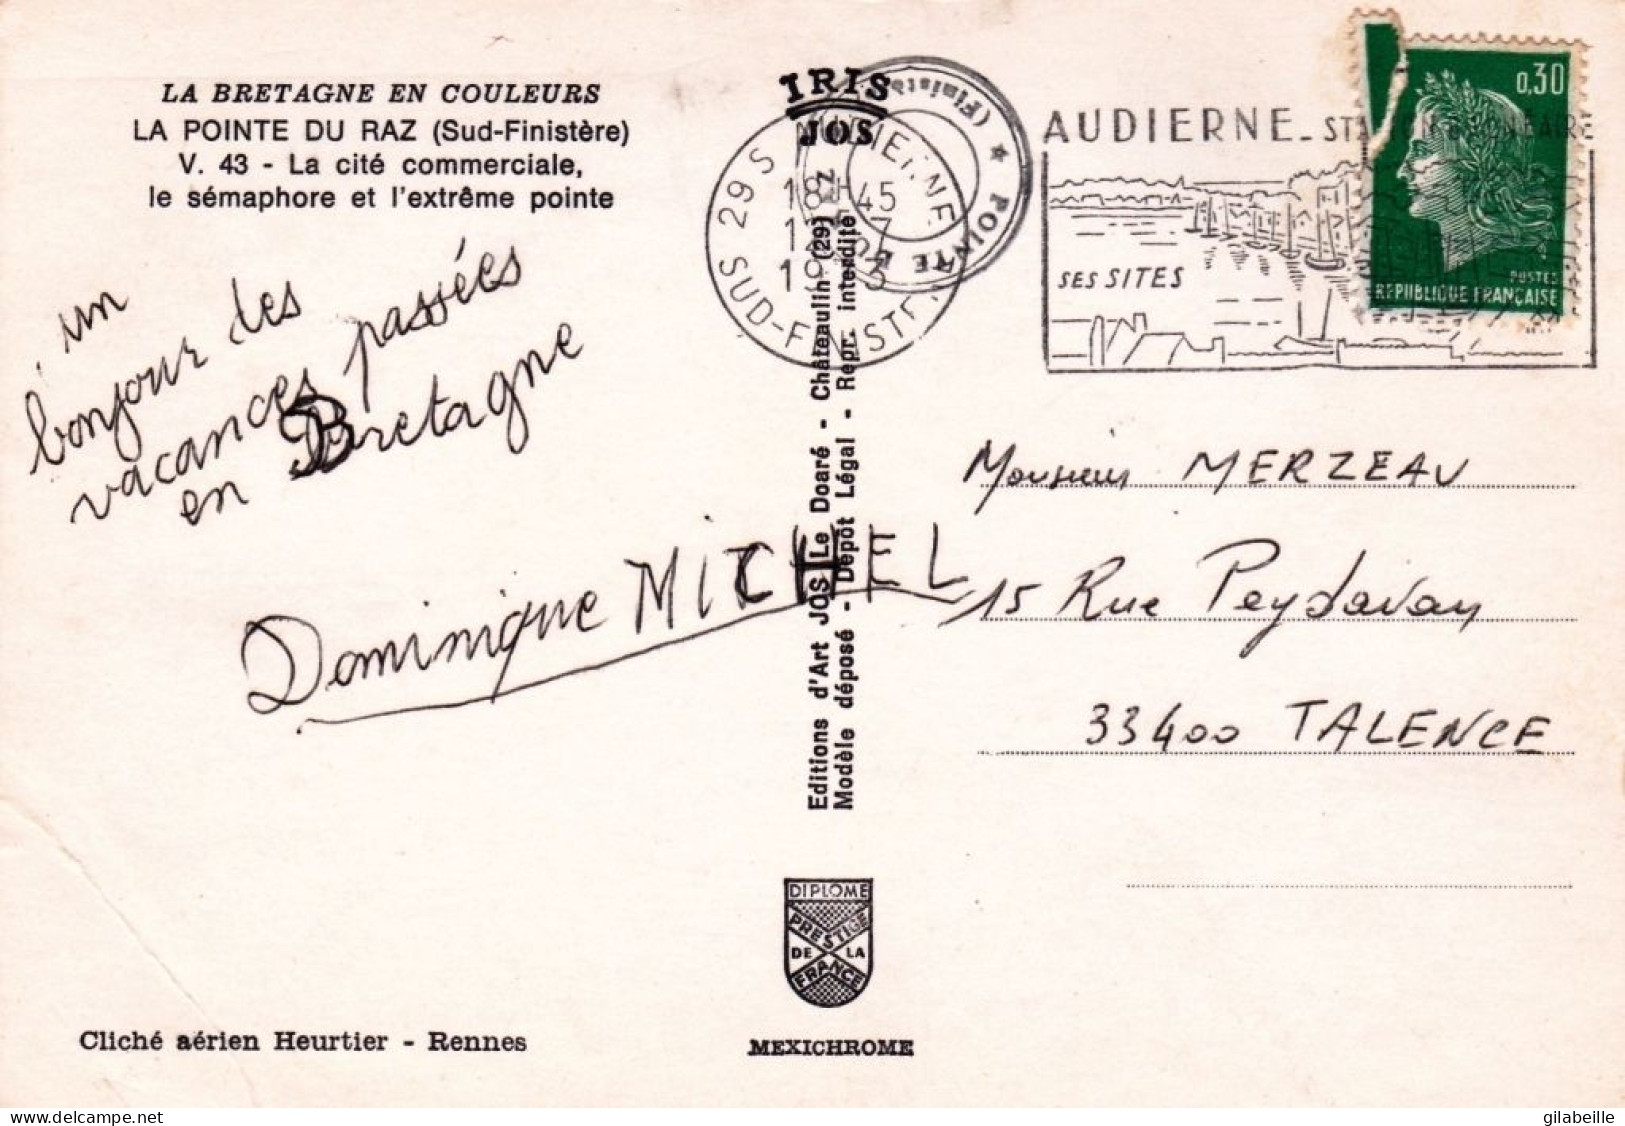 LA BRETAGNE EN COULEURS
LA POINTE DU RAZ (Sud-Finistère)
V. 43 - La cité commerciale,
le sémaphore et l'extrême pointe
un
bonjour des
vacances passées
en Bretagne
Dominique MICHEL
IRIS
JOS
29 S AUDIERNE
18H45
SUD-FINISTERE
POINTE DU RAZ
(Finistère)
AUDIERNE_ST
SES SITES
0,30
POSTES
REPUBLIQUE FRANÇAISE
Editions d'Art JOS Le Doaré - Châteaulin (29)
Modèle déposé - Dépôt Légal - Repr. interdite
Monsieur MERZEAU
15 Rue Peydavan
33400 TALENCE
DIPLOME
PRESTIGE
DE LA
FRANCE
Cliché aérien Heurtier - Rennes
MEXICHROME
delcampe.net
gilabeille